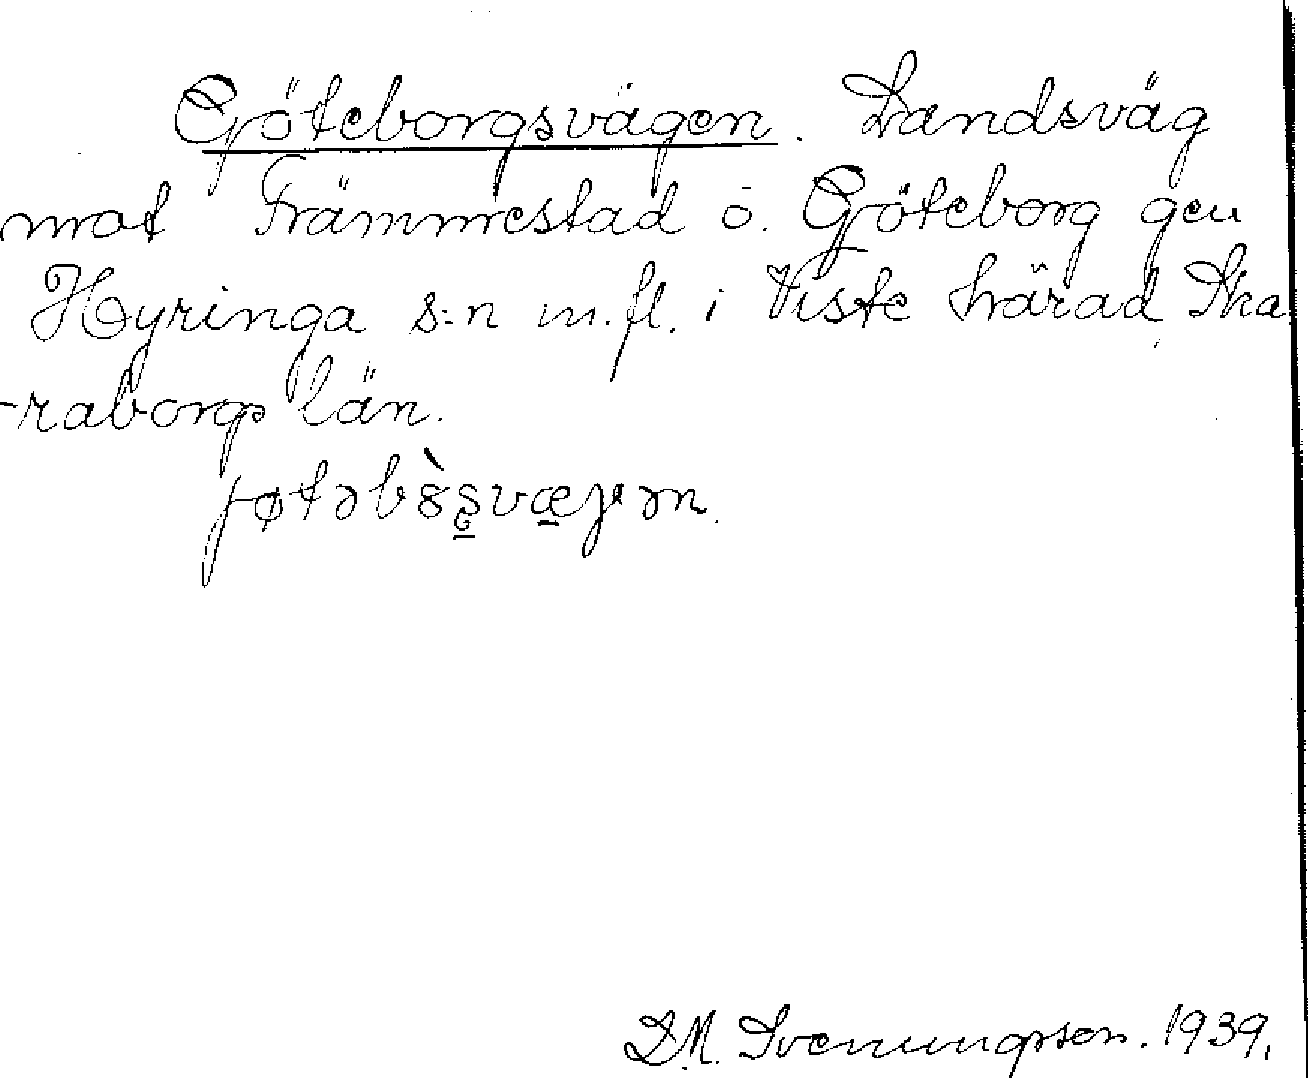 Göteborgsvägen. Landsväg
mot Främmestad o. Göteborg gen
Hyringa s:n m.fl. i Viste härad, Ska
-raborgs län.
D.M. Svenungsson. 1939.